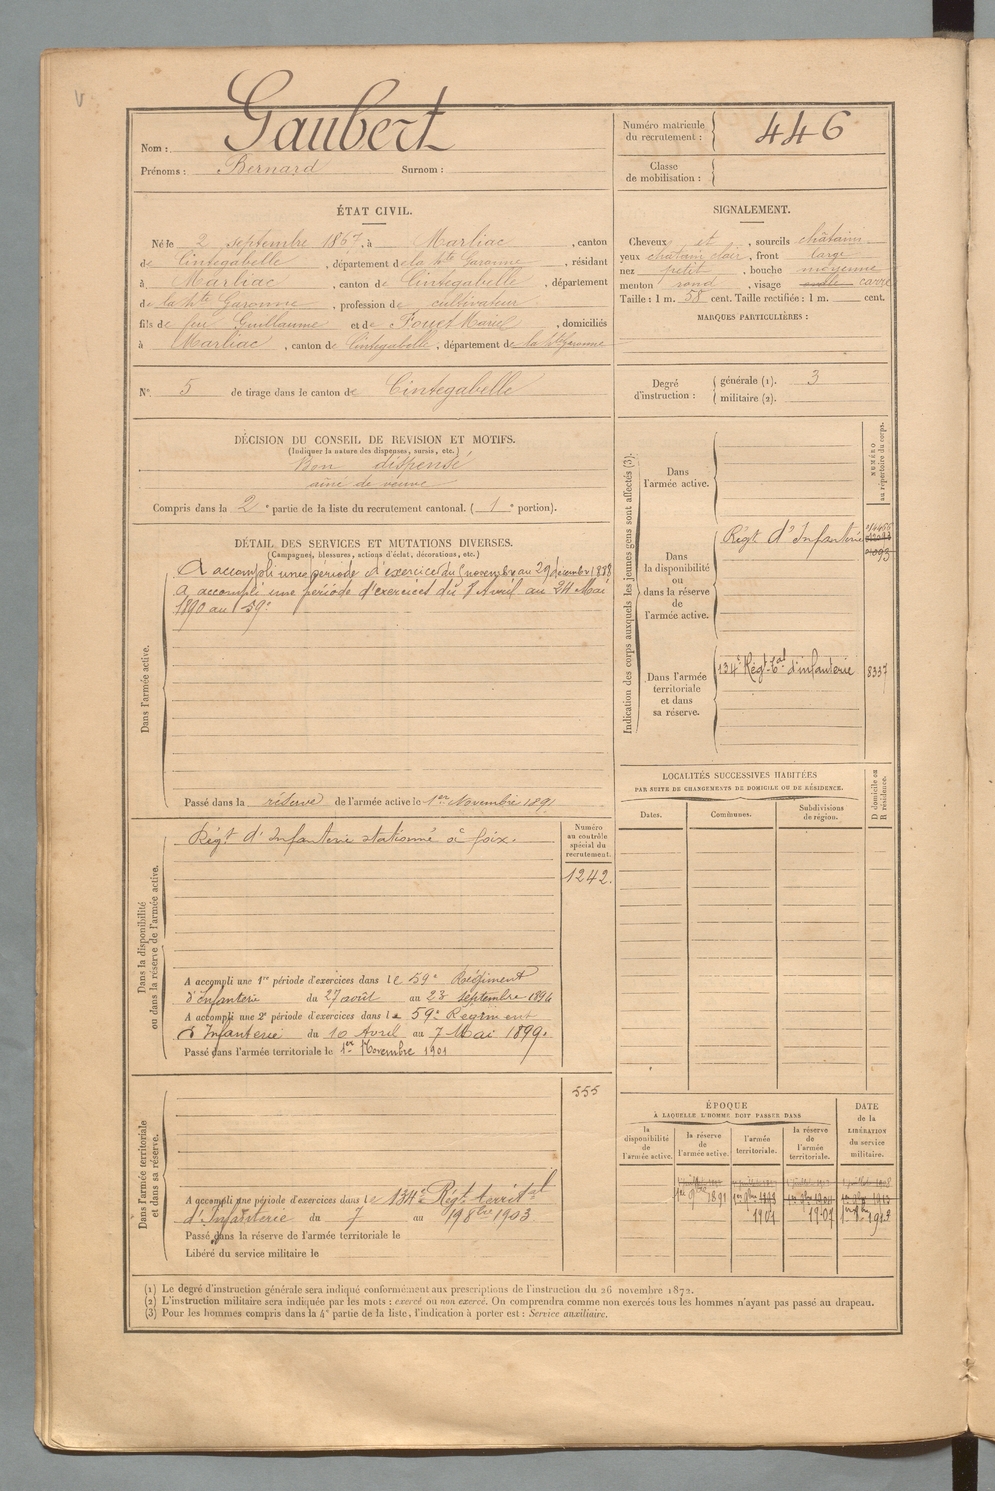 V
Nom : Gaubert
Prénoms : Bernard Surnom :
Numéro matricule du recrutement : 446
Classe de mobilisation :
ÉTAT CIVIL.
Né le 2 septembre 1867, à Marliac, canton
de Cintegabelle, département de la Hte Garonne, résidant
à Marliac, canton de Cintegabelle, département
de la Hte Garonne, profession de cultivateur
fils de feu Guillaume et de Pouet Marie, domiciliés
à Marliac, canton de Cintegabelle, département de la Hte Garonne
N° 5 de tirage dans le canton de Cintegabelle
SIGNALEMENT.
Cheveux et, sourcils châtains
yeux chatain clair, front large
nez petit, bouche moyenne
menton rond, visage ovale carré
Taille : 1 m. 58 cent. Taille rectifiée : 1 m. cent.
MARQUES PARTICULIÈRES :
Degré d'instruction : générale (1). 3
militaire (2).
DÉCISION DU CONSEIL DE REVISION ET MOTIFS.
(Indiquer la nature des dispenses, sursis, etc.)
Bon dispensé
aîné de veuve
Compris dans la 2e partie de la liste du recrutement cantonal. (1e portion).
DÉTAIL DES SERVICES ET MUTATIONS DIVERSES.
(Campagnes, blessures, actions d'éclat, décorations, etc.)
Dans l'armée active.
A accompli une période d'exercices du novembre au 29 décembre 1888
A accompli une période d'exercices du 1 Avril au 24 Mai
1890 au 59e
Passé dans la réserve de l'armée active le 1er Novembre 1891
Dans la disponibilité ou dans la réserve de l'armée active.
Régt d'Infanterie stationné à foix.
Numéro au contrôle spécial du recrutement.
1242.
A accompli une 1re période d'exercices dans le 59e Régiment
d'Infanterie du 27 août au 23 septembre 1894
A accompli une 2e période d'exercices dans le 59e Régiment
d'Infanterie du 10 Avril au 7 Mai 1899.
Passé dans l'armée territoriale le 1er Novembre 1901
Dans l'armée territoriale et dans sa réserve.
555
A accompli une période d'exercices dans le 134e Régt territal
d'Infanterie du 7 au 19 8bre 1903
Passé dans la réserve de l'armée territoriale le
Libéré du service militaire le
Indication des corps auxquels les jeunes gens sont affectés (3).
NUMÉRO au répertoire du corps.
Dans l'armée active.
Dans la disponibilité ou dans la réserve de l'armée active.
Régt d'Infanterie
Dans l'armée territoriale et dans sa réserve.
134e Régt tal d'infanterie 8337
LOCALITÉS SUCCESSIVES HABITÉES
PAR SUITE DE CHANGEMENTS DE DOMICILE OU DE RÉSIDENCE.
Dates. Communes. Subdivisions de région. D domicile ou R résidence.
ÉPOQUE
À LAQUELLE L'HOMME DOIT PASSER DANS
DATE de la LIBÉRATION du service militaire.
la disponibilité de l'armée active. la réserve de l'armée active. l'armée territoriale. la réserve de l'armée territoriale.
1er 9bre 1891
1901 1907
(1) Le degré d'instruction générale sera indiqué conformément aux prescriptions de l'instruction du 26 novembre 1872.
(2) L'instruction militaire sera indiquée par les mots : exercé ou non exercé. On comprendra comme non exercés tous les hommes n'ayant pas passé au drapeau.
(3) Pour les hommes compris dans la 4e partie de la liste, l'indication à porter est : Service auxiliaire.